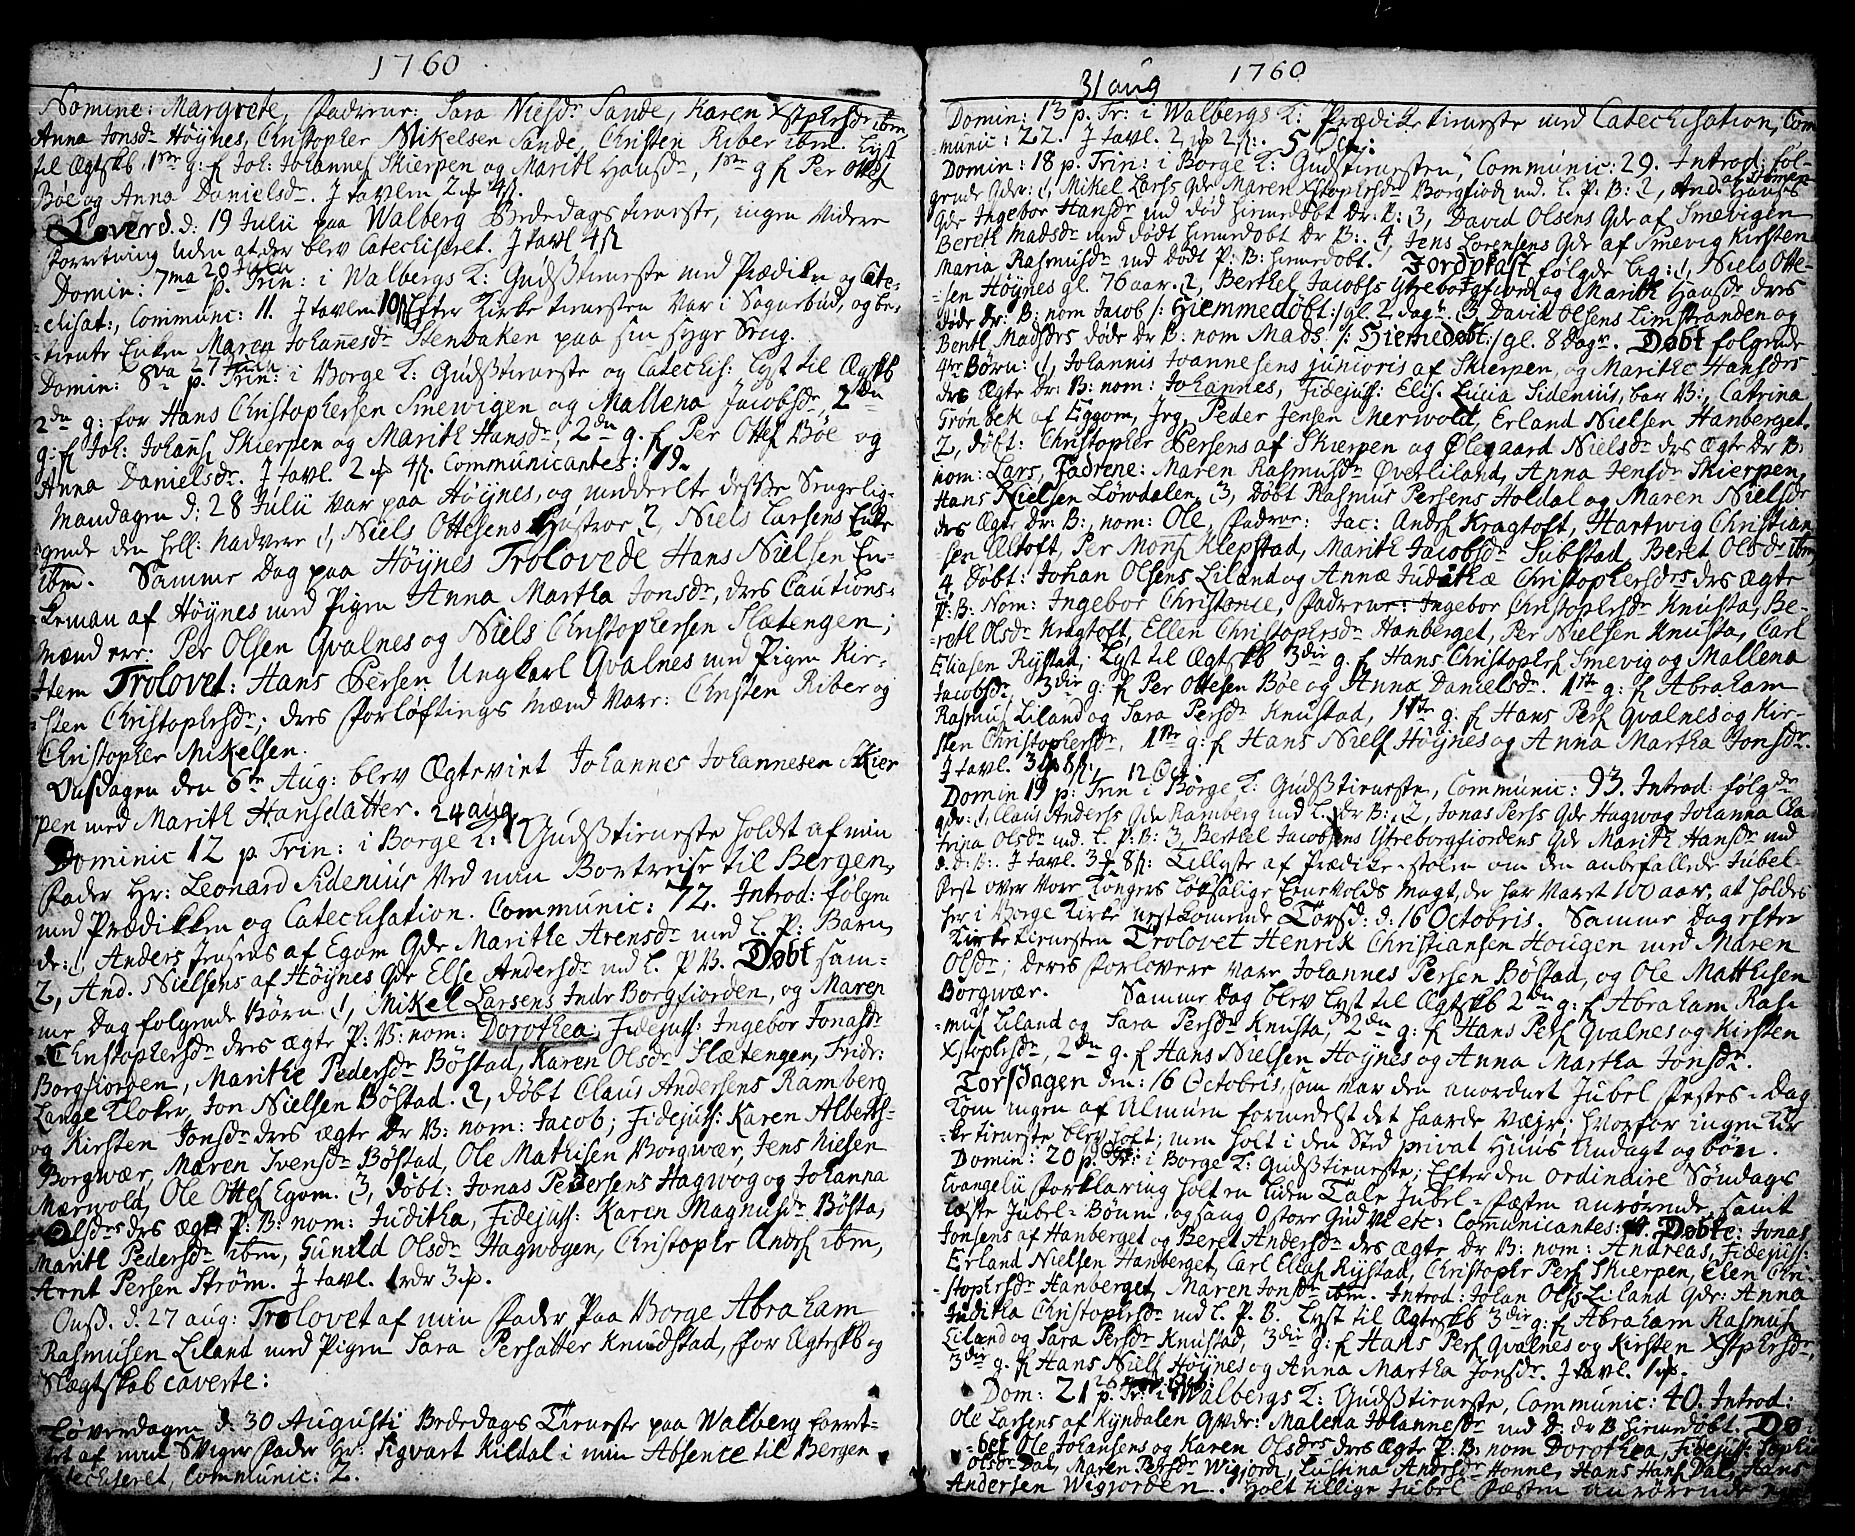 1760
Nomine: Margrete, Fadrene: Sara Nielsdr Sande, Karen Xstphersdr ibm,
Anna Jonsdr Høynes, Christopher Mikelsen Sande, Christen Riber ibm. Lyst
til Ægtskb, 1ste g: f Joh: Johannes Skierpen og Marith Hansdr, 1ste g f Per Ottes
Bøe og Anna Danielsdr. J tavlen 2 4ß.
Løverd. d: 19 Julii paa Walberg Bededags tieneste, ingen videre
forretning uden at der blev Catechiseret. J tavl 4ß
20 Julii
Domin: 7ma p. Trin: i Walbergs K: Gudstieneste med Prædiken og Cate-
-chisat:, Communic: 11. J tavlen 10ß Efter Kirketienesten var i Sognebud, og be-
tiente Enken Maren Johannesdr Stenbaken paa sin syge Seng.
27 Julii
Domin: 8va p. Trin: i Borge K: Gudstieneste og Catechis: Lyst til Ægtskb
2den g: for Hans Christophersen Smewigen og Mallena Jacobsdr, 2den
g: f Joh: Johans Skierpen og Marith Hansdr, 2den g. f Per Ottes Bøe og
Anna Danielsdr. J tavl. 2 4ß. Communicantes: 79.
Mandagen d: 28 Julii var paa Høynes, og meddeelte disse Sengelig-
gende den hell: Nadvere 1, Niels Ottesens Hustroe 2, Niels Larsens Enke
ibm. Samme Dag paa Høynes Trolovede Hans Nielsen En-
keman af Høynes med Pigen Anna Martha Jonsdr, deres Cautions-
Mænd ere: Per Olsen Qvalnes og Niels Christophersen Slætengen;
Item Trolovet: Hans Persen Ungkarl Qvalnes med Pigen Kir-
sten Christophersdr; deres Forløftings Mænd vare: Christen Riber og
Christopher Mikelsen.
Onsdagen den 6te Aug: blev Ægteviet Johannes Johannesen Skier
pen med Marith Hansdatter. 24 aug
Dominic 12 p Trin: i Borge K: Gudstieneste holdt af min
Fader Hr: Leonard Sidenius ved min Bortreise til Bergen,
med Prædikken og Catechisation. Communic: 72. Introd: følgen
de: 1, Anders Jensens af Egom Qde Marithe Arensdr med L. P: Barn,
2, And. Nielsens af Høynes Qde Else Andersdr med L. P B. Døbt sam-
me Dag følgende Børn 1, Mikel Larsens Indr Borgfiorden, og Maren
Christophersdr deres ægte P: B: nom: Dorothea, Fidejuss: Ingebor Jonasdr
Borgfiorden, Marithe Pedersdr Bøstad, Karen Olsdr Slætengen, Fridr:
Lange Kloker, Jon Nielsen Bøstad. 2, døbt Claus Andersens Ramberg
og Kirsten Jonsdr deres ægte Dr B: nom: Jacob; Fidejuss: Karen Alberths-
Borgwær, Maren Ivensdr Bøstad, Ole Mathisen Borgwær, Jens Nielsen
Mærwold, Ole Ottes Egom. 3, døbt: Jonas Pedersens Hagwog og Johanna
Olsdrs deres ægte P: B: nom: Juditha, Fidejuss: Karen Magnusdr Bøsta,
Marith Pedersdr ibm, Gunild Olsdr Hagwogen, Christopher Anders ibm,
Arnt Persen Strøm. J tavl. 1 rdr 3.
Onsd. d. 27 aug: Trolovet af min Fader paa Borge Abraham
Rasmusen Liland med Pigen Sara Persatter Knudstad, for Ægteskb og
Slægtskab caverte:
Løverdagen d. 30 Augusti Bededags Tieneste paa Walberg forret-
tet af min Sviger Fader Hr: Sigvart Kildal i min Absence til Bergen
Catechiseret, Communic: 2.
1760
31 aug
Domin: 13 p. Tr: i Walbergs K: Prædiketieneste med Catechisation, Com
-munic: 22. J tavl. 2 2ß.
5 Oct:
Domin: 18 p. Trin: i Borge K: Gudstienesten, Communic: 29. Introd: føl-
gende Qdr: 1, Mikel Larss Qde Maren Xstophersdr Borgfiord med L. P. B: 2, And. Hanses
Qde Ingebor Hansdr med død hiemedøbt Dr. B: 3, David Olsens Qde af Smevigen
Bereth Madsdr med dødt hiemedøbt Dr B:. 4, Jens Lorensens Qde af Smevig Kirsten
Maria Rasmusdr med dødt P: B: hiemedøbt. Jordpkast følgde Lig: 1, Niels Otte-
-sen Høynes gl. 76 aar. 2, Berthel Jacobss Ytreborgfiord og Marith Hansdr deres
døde dr: B: nom Jacob /: Hiemmedøbt:/ gl. 2 dage. 3 David Olsens Limstranden og
Benth Madsdrs døde dr B: nom Mads /: Hiemedøbt:/ gl. 8 Dage. Døbt følgende
4re Børn: 1, Johannis Joannesens junioris af Skierpen, og Marithe Hansdrs
deres ægte dr: B: nom: Johannes, Fidejuss: Elis. Lucia Sidenius, bar B:, Catrina
Grønbek af Eggom, Jrg. Peder Jensen Merwold, Erland Nielsen Hanberget.
2, døbt: Christopher Persens af Skierpen og Olegaard Nielsdr deres ægte Dr B:
nom: Lars, Fadrene: Maren Rasmusdr Øverliland, Anna Jensdr Skierpen,
Hans Nielsen Løwdalen. 3, Døbt Rasmus Persens Holdal og Maren Nielsdr
deres ægte dr: B:, nom: Ole, Fadrer: Jac: Anders Kragtoft, Hartwig Christian
-sen Altoft, Per Mons Klepstad, Marith Jacobsdr Substad, Beret Olsdr ibm,
4, Døbt: Johan Olsens Liland og Annæ Judithæ Christophersdrs deres ægte
P: B: Nom: Ingebor Christence, Fadrene: Ingebor Christophersdr Knusta, Be-
reth Olsdr Kragtoft, Ellen Christophersdr Hanberget, Per Nielsen Knusta, Carl
Eliasen Rystad, Lyst til Ægtskb 3die g. f Hans Christophers Smevig og Mallena
Jacobsdr, 3die g: f Per Ottesen Bøe og Anna Danielsdr. 1ste g: f Abraham
Rasmus Liland og Sara Persdr Knustad, 1ste g: f Hans Pers Qvalnes og Kir-
sten Christophersdr, 1ste g: f Hans Niels Høynes og Anna Martha Jonsdr.
J tavl. 3 8ß. 12 Oct:
Domin 19 p: Trin i Borge K: Gudstieneste, Communic: 93. Introd: følgde
qdr: 1, Claus Anderss Qde Ramberg med L: dr B:. 2, Jonas Perss Qde Hagwog Johanna Ca
trina Olsdr med. L. P: B: 3 Berthel Jacobsens Ytreborgfiordens Qde Marith Hansdr med
d. d: B:. J tavl. 3 8ß: Tillyste af Prædike-stolen om den anbefallede Jubel-
Fest over vore Kongers Lovsalige Enevolds Magt, der har varet 100 aar, at holdes
her i Borge Kirke nestkomende Torsd: d: 16 Octobris. Samme Dag efter
Kirketienesten Trolovet Henrik Christiansen Hougen med Maren
Olsdr; deris Forlovere vare Johannes Persen Bøstad, og Ole Matthisen
Borgwær. Samme Dag blev Lyst til Ægtskb 2den g: f Abraham Ras-
-mus Liland og Sara Persdr Knusta, 2den g: f Hans Pers Qvalnes og Kirsten
Xstophersdr, 2den g. f Hans Nielsen Høynes og Anna Martha Jonsdr.
Torsdagen den: 16 Octobris, som var den anordnet Jubel Festes-Dag
kom ingen af Almum formedelst det haarde Vejr; hvorfor ingen Kir
-ketieneste blev holt; men holt i den Sted privat Huus Andagt og bøn.
Domin: 20 p. Tr: i Borge K: Gudstieneste; Efter den ordinaire Søndags
Evangelii Forklaring holt en liden Tale Jubel-Fæsten anrørende, samt
læste Jubel-Bønnen, og sang O store Gud vi etc: Comunicantes: Døbte: Jonas
Jonsens af Hanberget og Beret Andersdr deres ægte Dr B: nom: Andreas, Fidejuss:
Erland Nielsen Hanberget, Carl Elias Rystad, Christopher Pers Skierpen, Elen Chri-
-stophersdr Hanberget, Maren Jonsdr ibm. Introd: Johan Olss Liland Qdr: Anna
Juditha Christophersdr med L. P. B. Lyst til Ægteskb 3die g: f Abraham Rasmus
Liland og Sara Persdr Knustad, 3die g: f Hans Pers Qvalnes og Kirsten Xstphersdr,
3die g. f Hans Niels Høynes og Anna Martha Jonsdr. J tavl. 1.
26 Oct:
Dom: 21 p. Tr: i Walbergs K: Gudstieneste, Communic: 40. Introd:
Ole Larsens af Kyndalen Qvdr: Malena Johannesdr med D. dr B. hiemedøbt. Dø-
-bet Ole Johansens og Karen Olsdrs deres ægte P: B: nom Dorothea, Fidejuss: Sophi
Olsdr Dal, Maren Persdr Wigjord, Lustina Andersdr Honne, Hans Hans Dal, Hans
Andersen Wigjorden. Holt tillige Jubel Fæsten anrørende